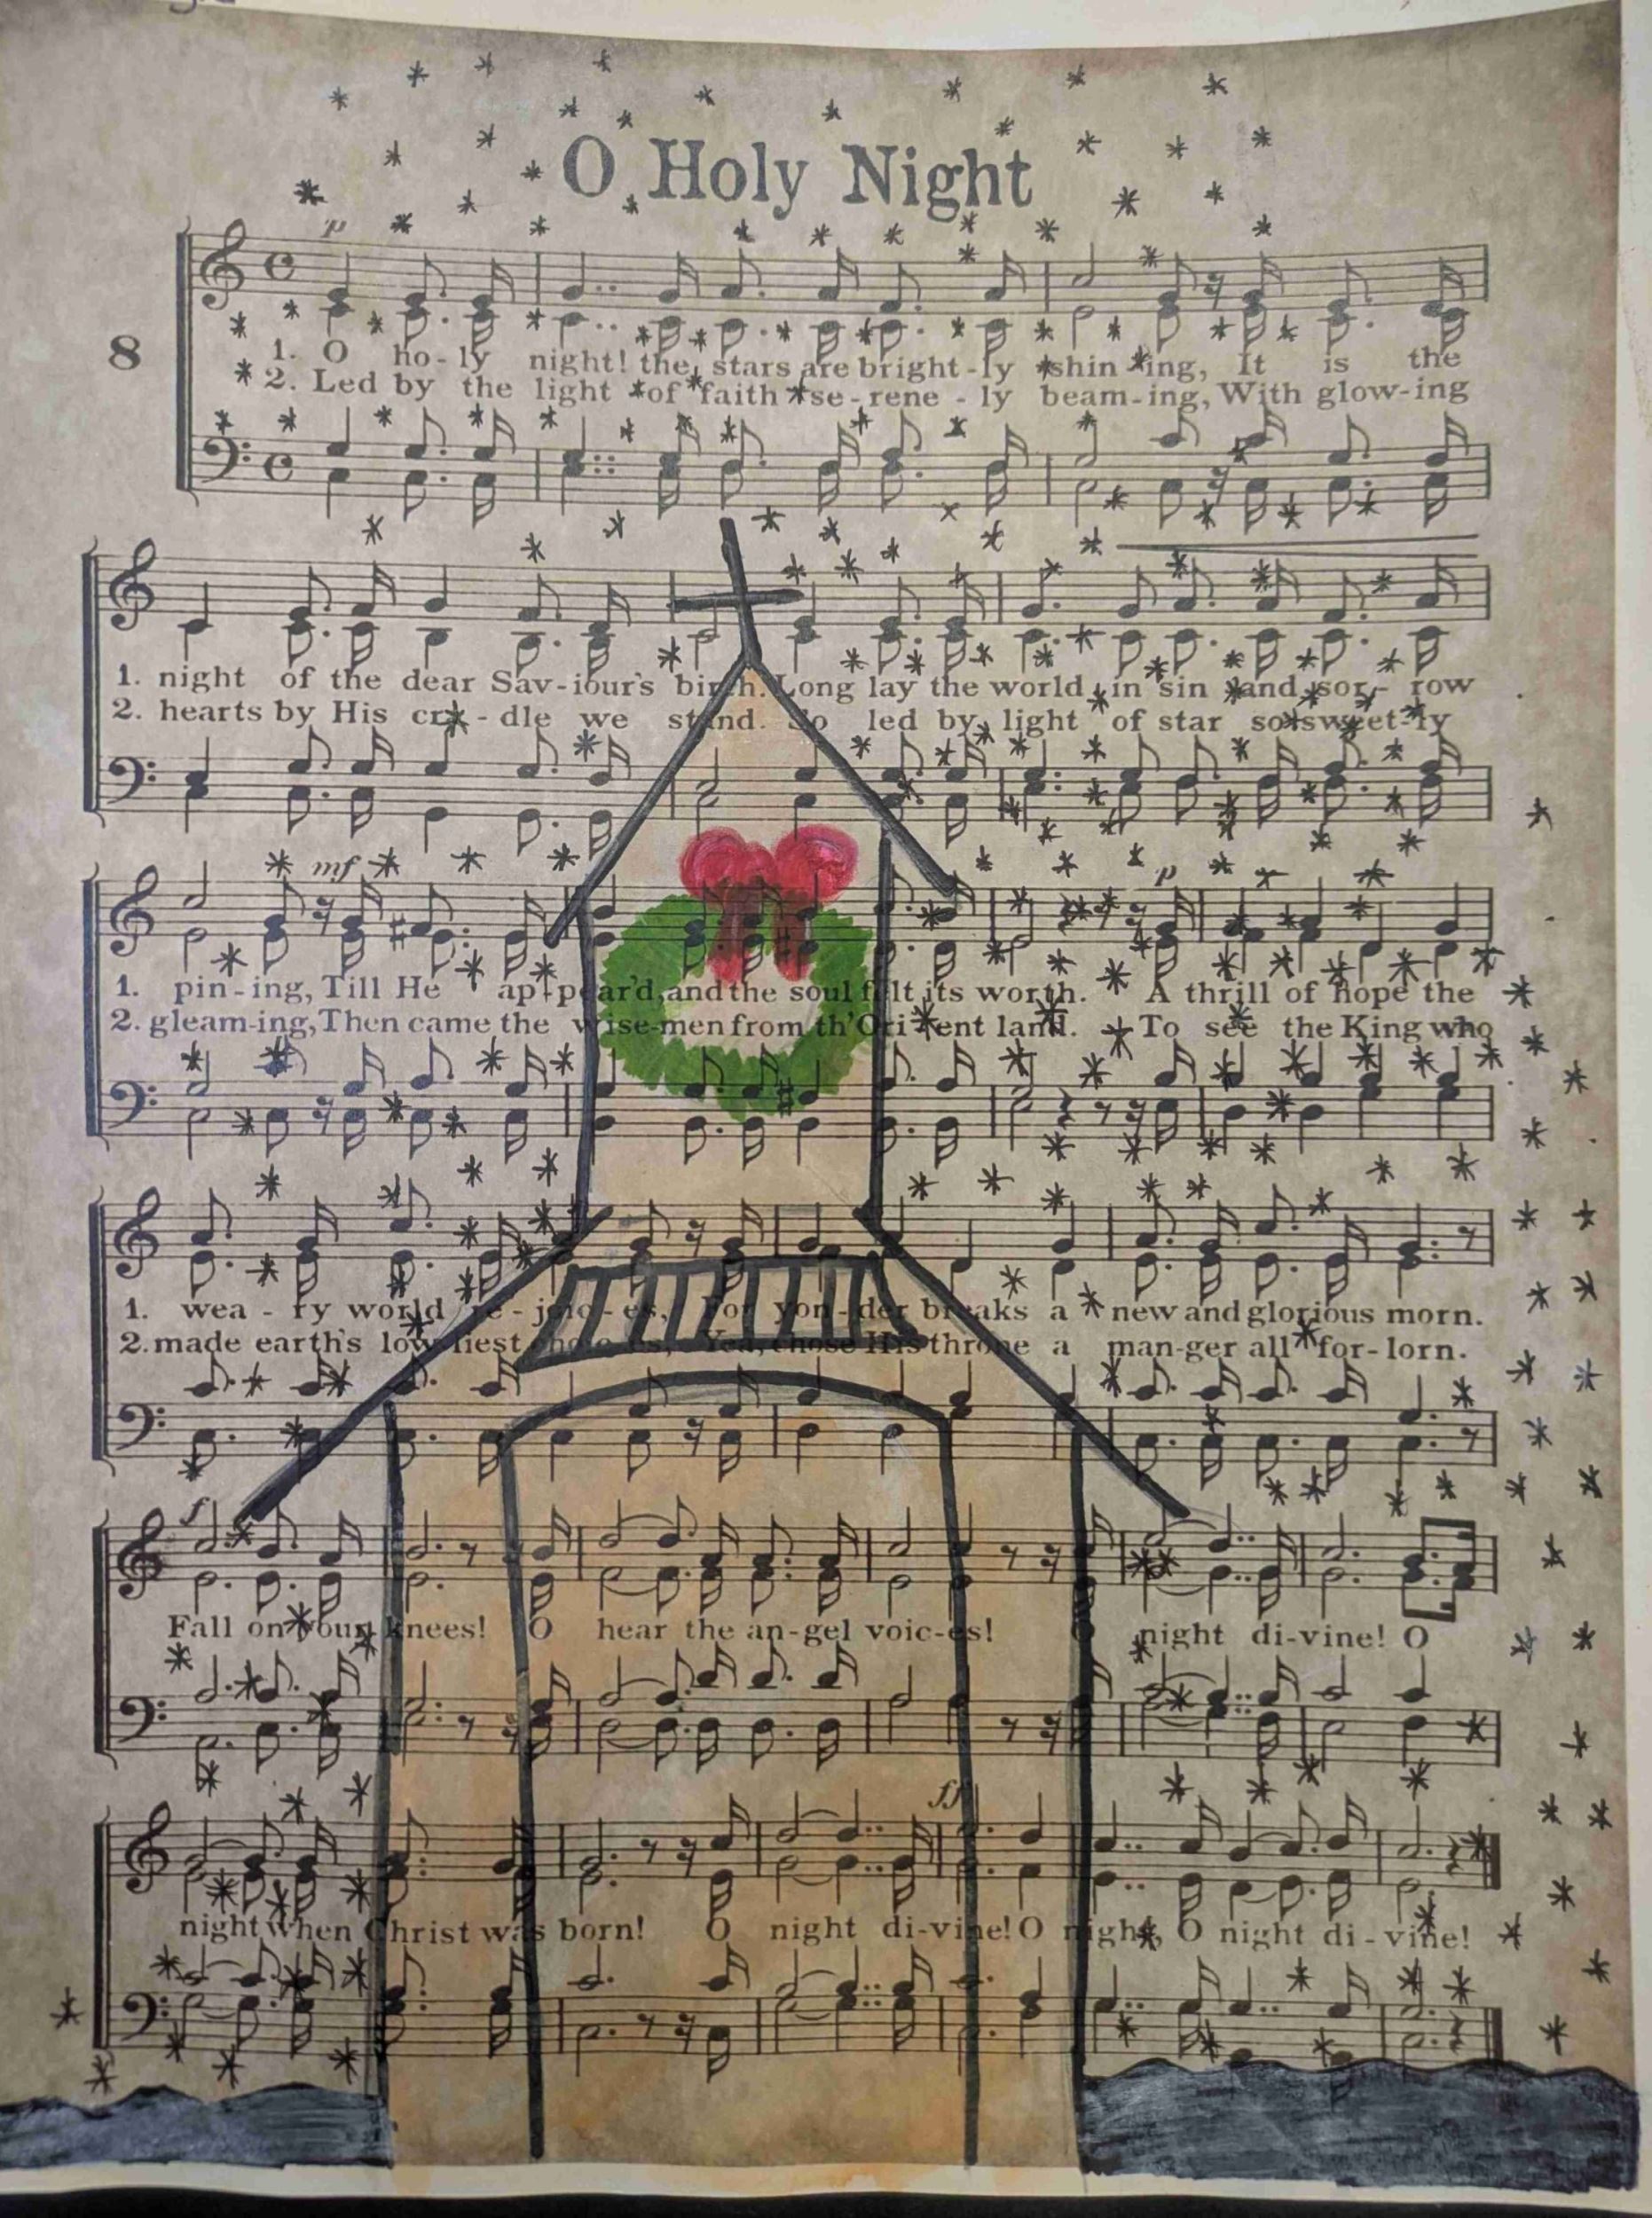 O Holy Night
p
8
1. O ho-ly night! the stars are bright-ly shin-ing, It is the
2. Led by the light of faith se-rene-ly beam-ing, With glow-ing
1. night of the dear Sav-iour's birth. Long lay the world in sin and sor-row
2. hearts by His cra-dle we stand. So led by light of star so sweet-ly
mf p
1. pin-ing, Till He ap-pear'd, and the soul felt its worth. A thrill of hope the
2. gleam-ing, Then came the wise-men from th'Ori-ent land. To see the King who
1. wea-ry world re-joic-es, For yon-der breaks a new and glorious morn.
2. made earth's low-liest choic-es, Yea, chose His throne a man-ger all for-lorn.
f
Fall on your knees! O hear the an-gel voic-es! O night di-vine! O
ff
night when Christ was born! O night di-vine! O night, O night di-vine!